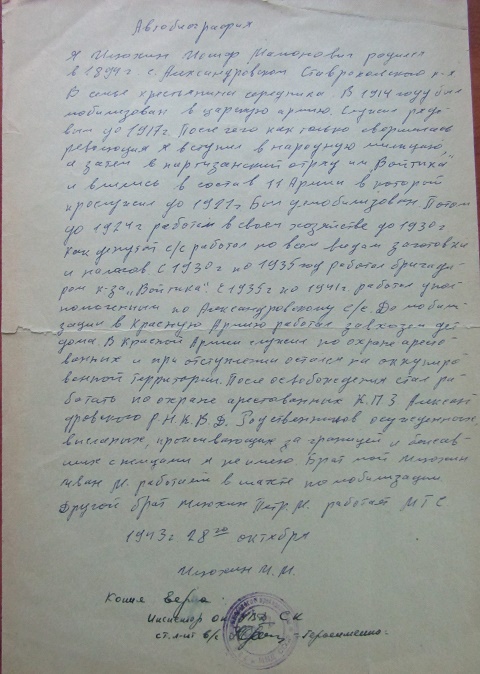 Автобиография
Я Илюхин Иосиф Мамонович родился
в 1894 г с. Александровском Ставропольского к-я
В семье крестьянина середняка В 1914 году был
мобилизован в царскую армию. Служил рядо-
вым до 1917 г. После чего как только свершилась
революция я вступил в народную милицию,
а затем в партизанский отряд им. "Войтика"
и влились в состав 11 Армии в которой
прослужил до 1921 г Был демобилизован Потом
до 1924 г работал в своем хозяйстве до 1930 г
как депутат с/с работал по всем видам заготовки
и налогов С 1930 г по 1935 год работал бригади-
ром к-за "Войтика". С 1935 г по 1941 г работал упол-
номоченным по Александровскому с/с. До моби-
лизации в Красную Армию работал завхозом дет
дома. В Красной Армии служил по охране аресто-
ванных и при отступлении остался на оккупиро-
ванной территории. После освобождения стал ра-
ботать по охране арестованных К.П.З Алексан-
дровского Р.Н.К.В.Д. Родственников осужденных,
высланных, проживающих за границей и бежав-
ших с немцами я не имею. Брат мой Илюхин
Иван М. работает в шахте по мобилизации.
Другой брат Илюхин Петр. М. работает МТС
1943 г 28го октября
Илюхин И. М.
Копия верна:
Инспектор СК
ст. л-нт в/с Герасименко.